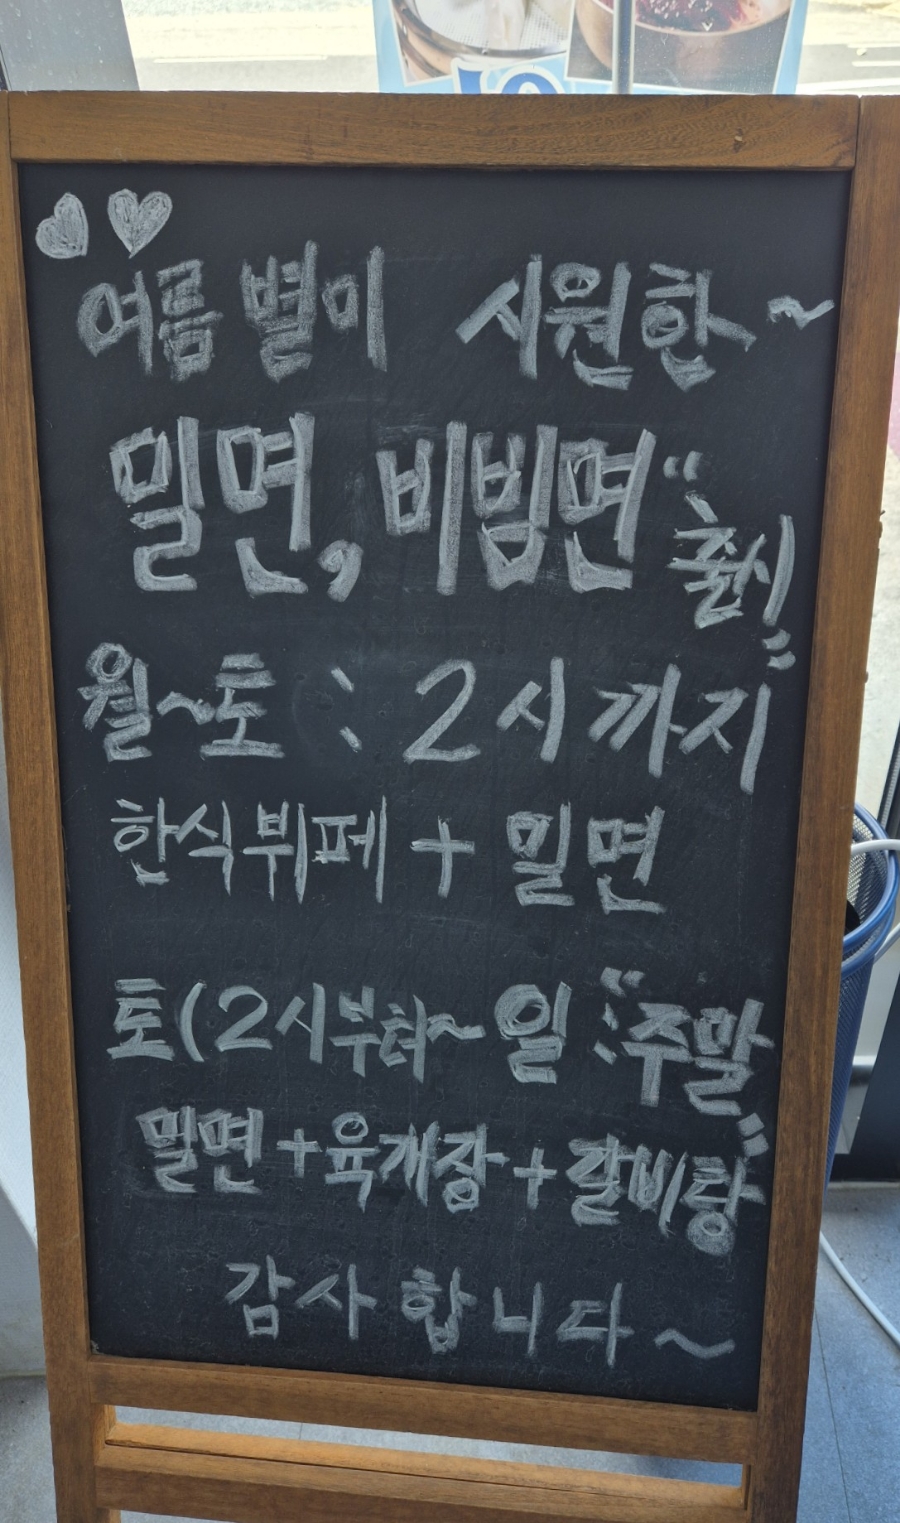 여름 별미 시원한~
밀면, 비빔면 "출시"
월~토 : 2시까지
한식뷔페 + 밀면
토(2시부터~일 : "주말"
밀면+육개장+갈비탕
감사합니다~